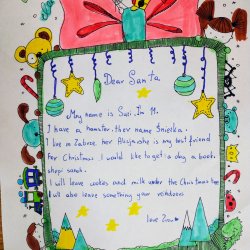 Dear Santa
My name is Susi. Im 11.
I have a hamster. they name Śnieżka.
I live in Zabrze. her Alicja is my best friend
For Christmas I would like to get a dog a book,
shopi sarah.
I will leave cookes and milk under the Christmas tree
I will also leave something your reindeers
love Zuza